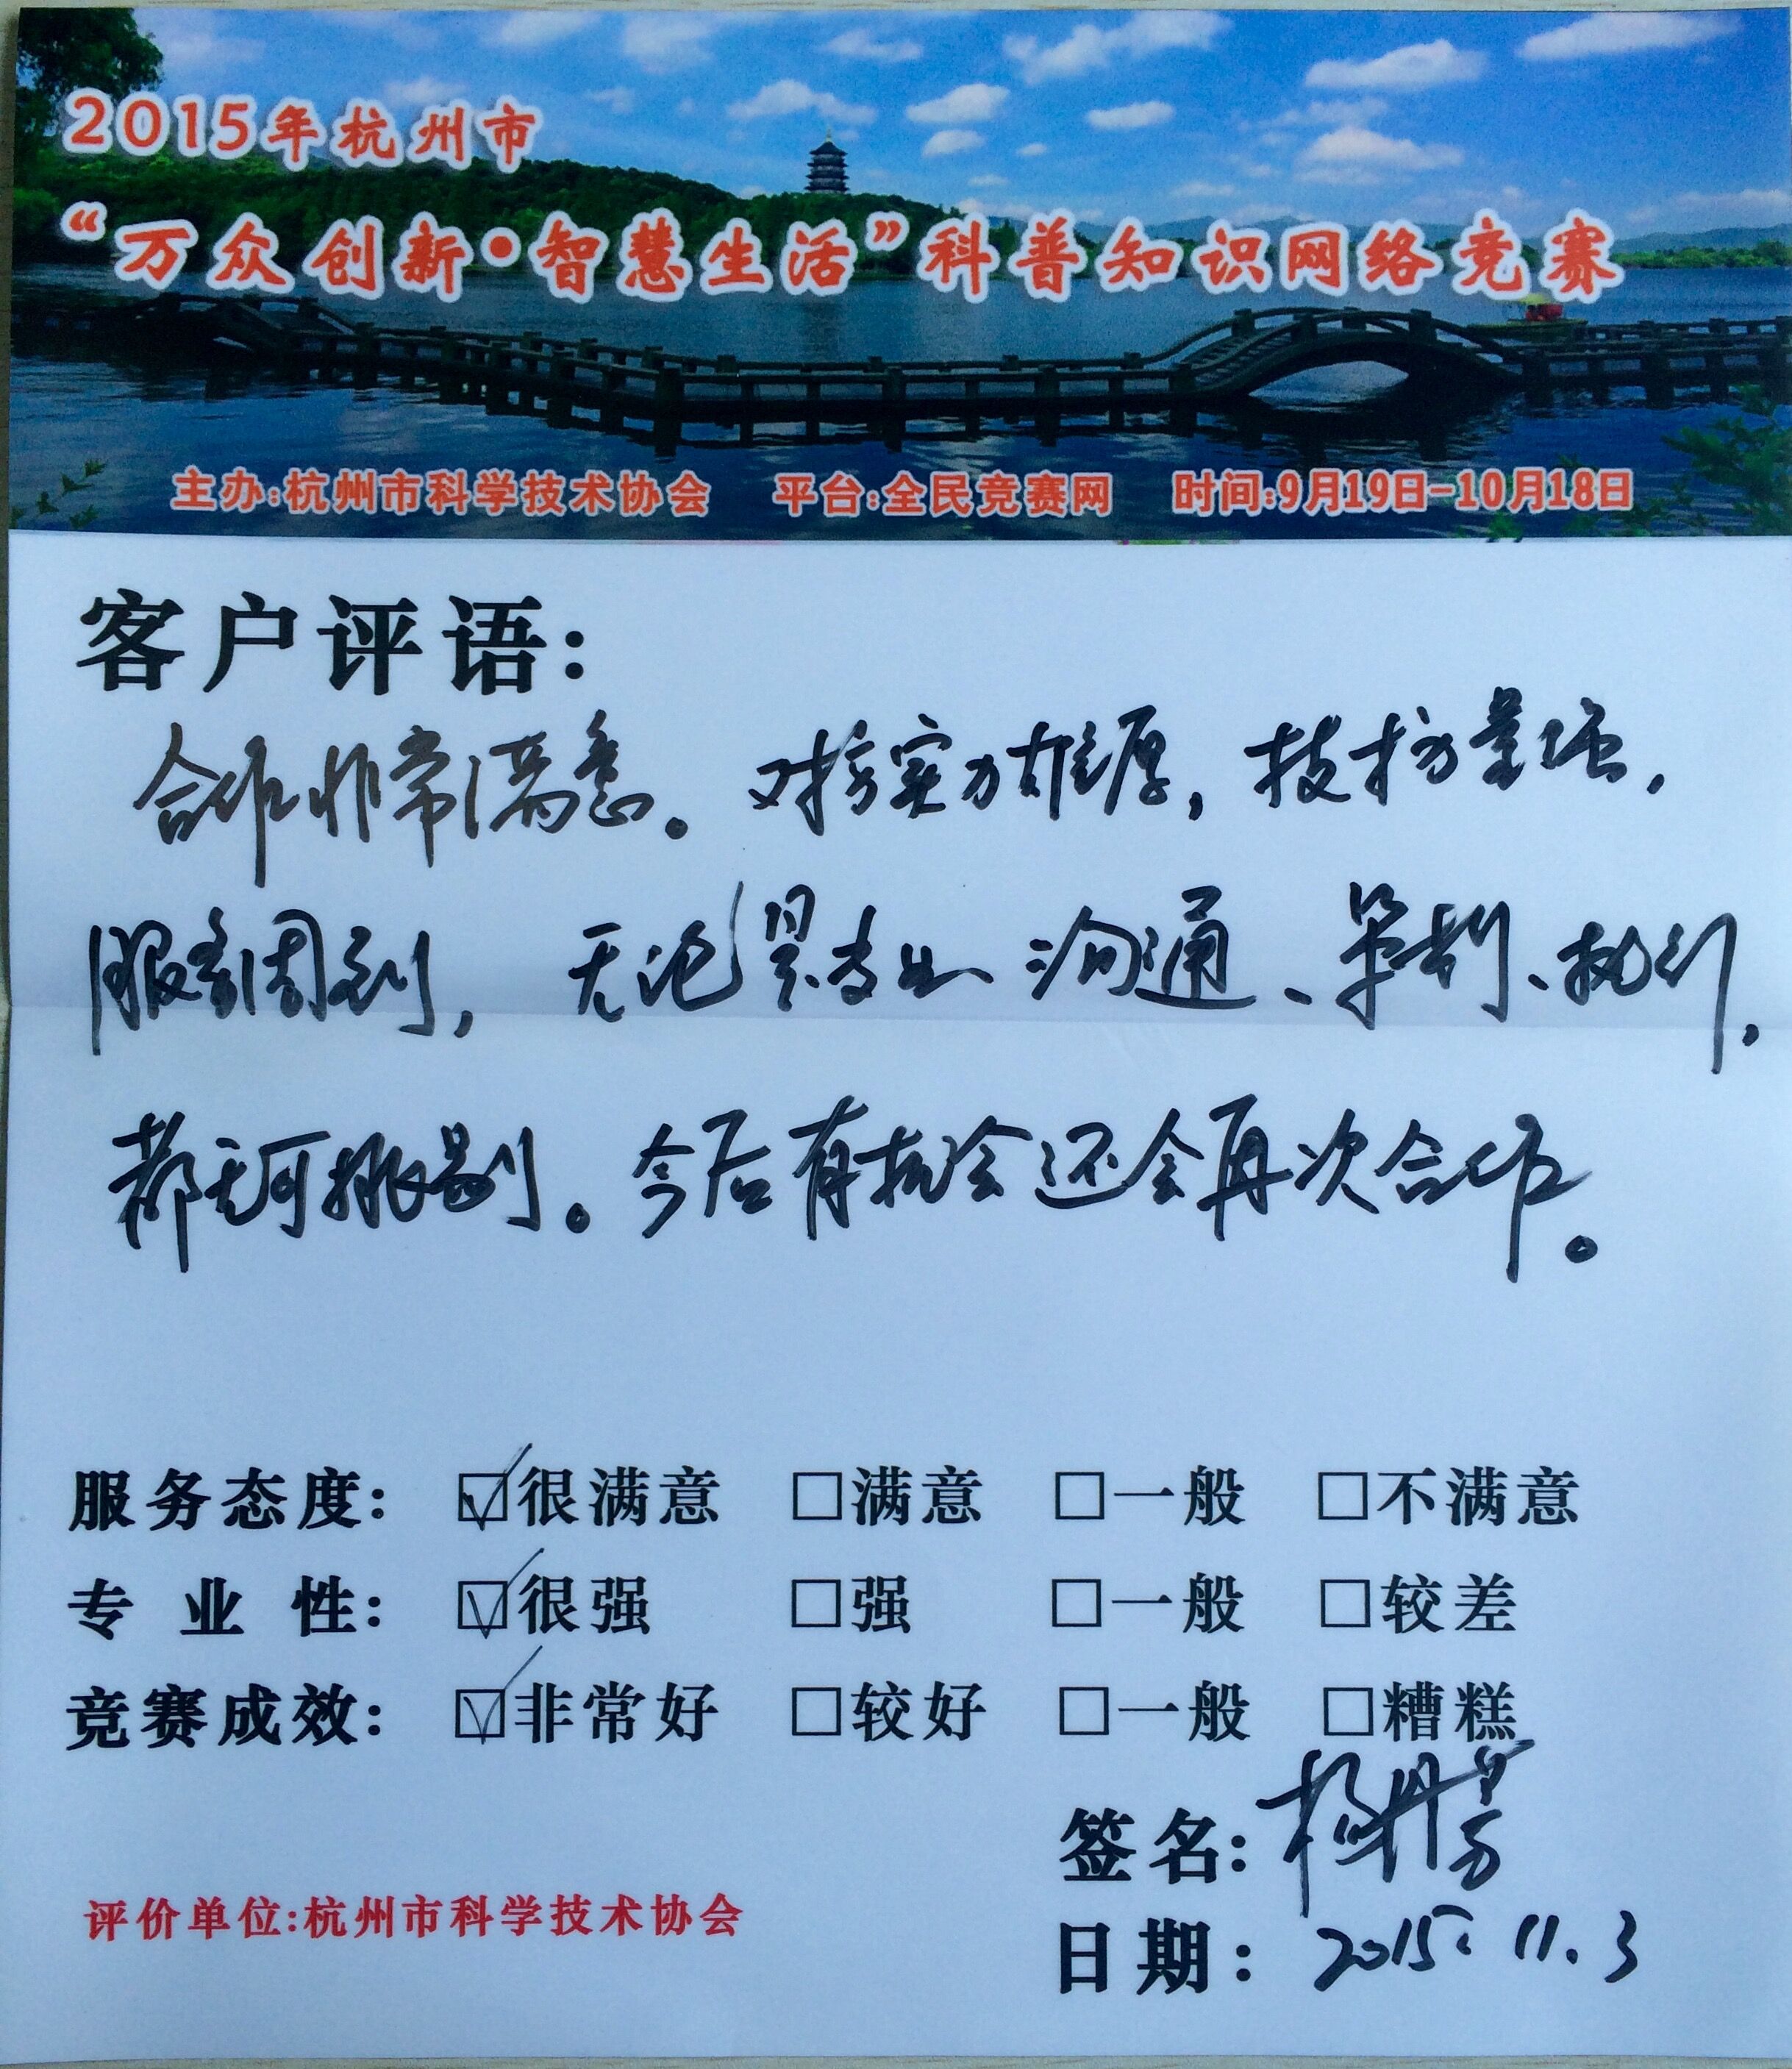 2015年杭州市
“万众创新•智慧生活”科普知识网络竞赛
主办:杭州市科学技术协会 平台:全民竞赛网 时间:9月19日-10月18日
客户评语:
合作非常满意。对方实力雄厚,技术力量强,
服务周到,无论是专业沟通、策划、执行,
都无可挑剔。今后有机会还会再次合作。
服务态度: ☑很满意 □满意 □一般 □不满意
专业性: ☑很强 □强 □一般 □较差
竞赛成效: ☑非常好 □较好 □一般 □糟糕
签名:杨丹芳
评价单位:杭州市科学技术协会
日期: 2015.11.3